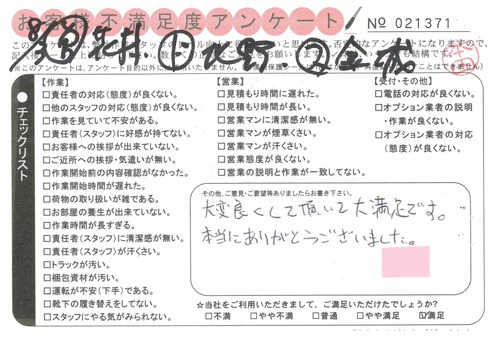 お客様不満足度アンケート
No 021371
※このアンケートは、アンケート目的以外には
【作業】
□責任者の対応(態度)が良くない。
□他のスタッフの対応(態度)が良くない。
□作業を見ていて不安がある。
□責任者(スタッフ)に好感が持てない。
□お客様への挨拶が出来ていない。
□ご近所への挨拶・気遣いが無い。
□作業開始前の内容確認がなかった。
□作業開始時間が遅れた。
□荷物の取り扱いが雑である。
□お部屋の養生が出来ていない。
□作業時間が長すぎる。
□責任者(スタッフ)に清潔感が無い。
□責任者(スタッフ)が汗くさい。
□トラックが汚い。
□梱包資材が汚い。
□運転が不安(下手)である。
□靴下の履き替えをしてない。
□スタッフにやる気がみられない。
【営業】
□見積もり時間に遅れた。
□見積もり時間が長い。
□営業マンに清潔感が無い。
□営業マンが煙草くさい。
□営業マンが汗くさい。
□営業態度が良くない。
□営業の説明と作業が一致してない。
【受付・その他】
□電話の対応が良くない。
□オプション業者の説明
・作業が良くない。
□オプション業者の対応
(態度)が良くない。
●チェックリスト
その他、ご意見・ご要望等ありましたらお書き下さい。
大変良くして頂いて大満足です。
本当にありがとうございました。
☆当社をご利用いただきまして、ご満足いただけたでしょうか?
□不満 □やや不満 □普通 □やや満足 ☑満足